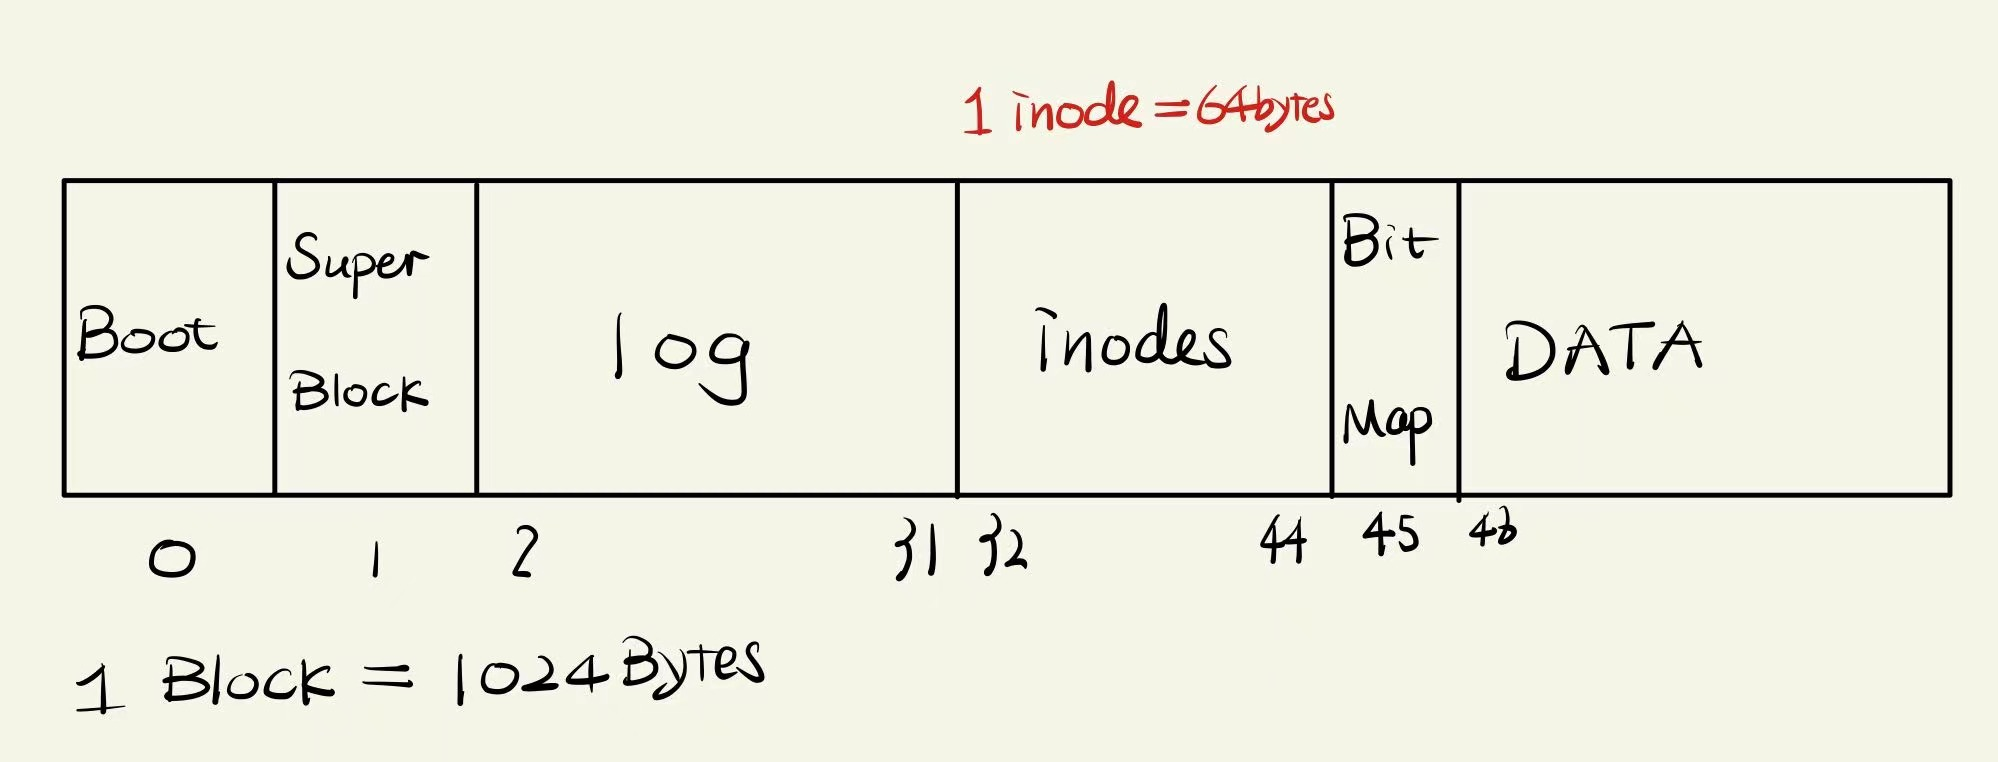 1 inode = 64bytes
Boot
Super
Block
log
inodes
Bit
Map
DATA
0 1 2 31 32 44 45 46
1 Block = 1024 Bytes